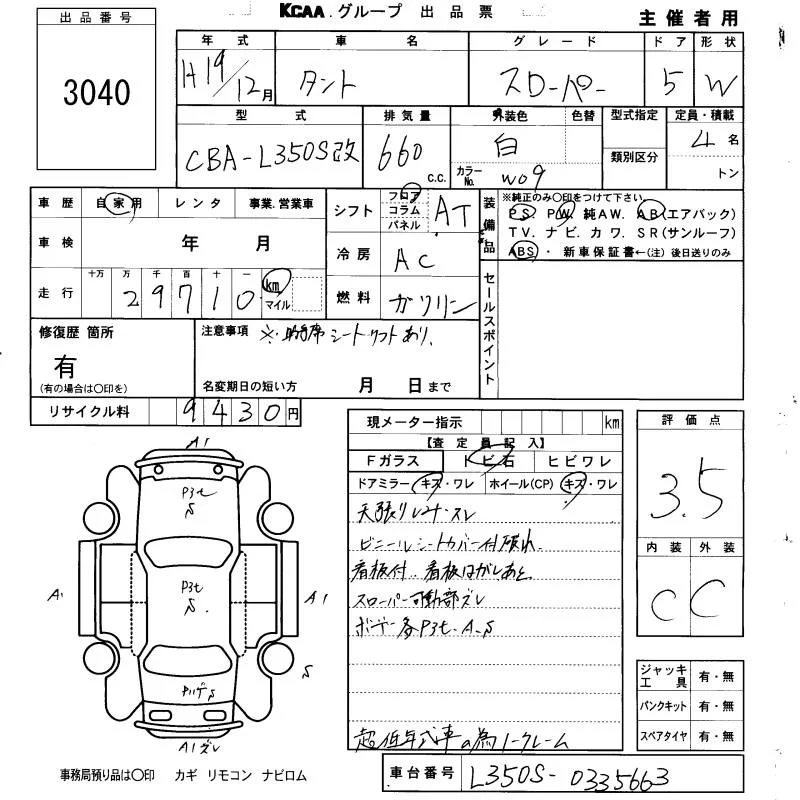 KCAA. グループ 出品票
主催者用
出品番号
3040
年式 車名 グレード ドア 形状
H19/12月 タント スローパー 5 W
型式 排気量 外装色 色替 型式指定 定員・積載
CBA-L350S改 660 c.c. 白 4名
カラーNo. W09 類別区分 トン
車歴 自家用 レンタ 事業.営業車
シフト フロア コラム パネル AT
装備品 ※純正のみ○印をつけて下さい
PS PW 純AW. AB(エアバック)
TV. ナビ. カワ. SR(サンルーフ)
ABS ・ 新車保証書←(注) 後日送りのみ
車検 年 月
冷房 AC
走行 十万 万 千 百 十 一
29710 km マイル
燃料 ガソリン
セールスポイント
修復歴 箇所
有
(有の場合は○印を)
注意事項 ※.助手席シートリフトあり.
名変期日の短い方 月 日まで
リサイクル料 9430円
現メーター指示 km
【査定員記入】
Fガラス トビ石 ヒビワレ
ドアミラー キズ・ワレ ホイール(CP) キズ・ワレ
天張りレザースレ
ビニールシートカバー付破れ.
看板付.. 看板はがしあと
スローパー可動部ズレ
ボデー各P3t. A.S
超低年式車の為ノークレーム
評価点
3.5
内装 外装
C C
ジャッキ工具 有・無
パンクキット 有・無
スペアタイヤ 有・無
A1
P3t
S
P3t
S
A1
A1
S
S
A1ズレ
事務局預り品は○印 カギ リモコン ナビロム
車台番号 L350S-0335663